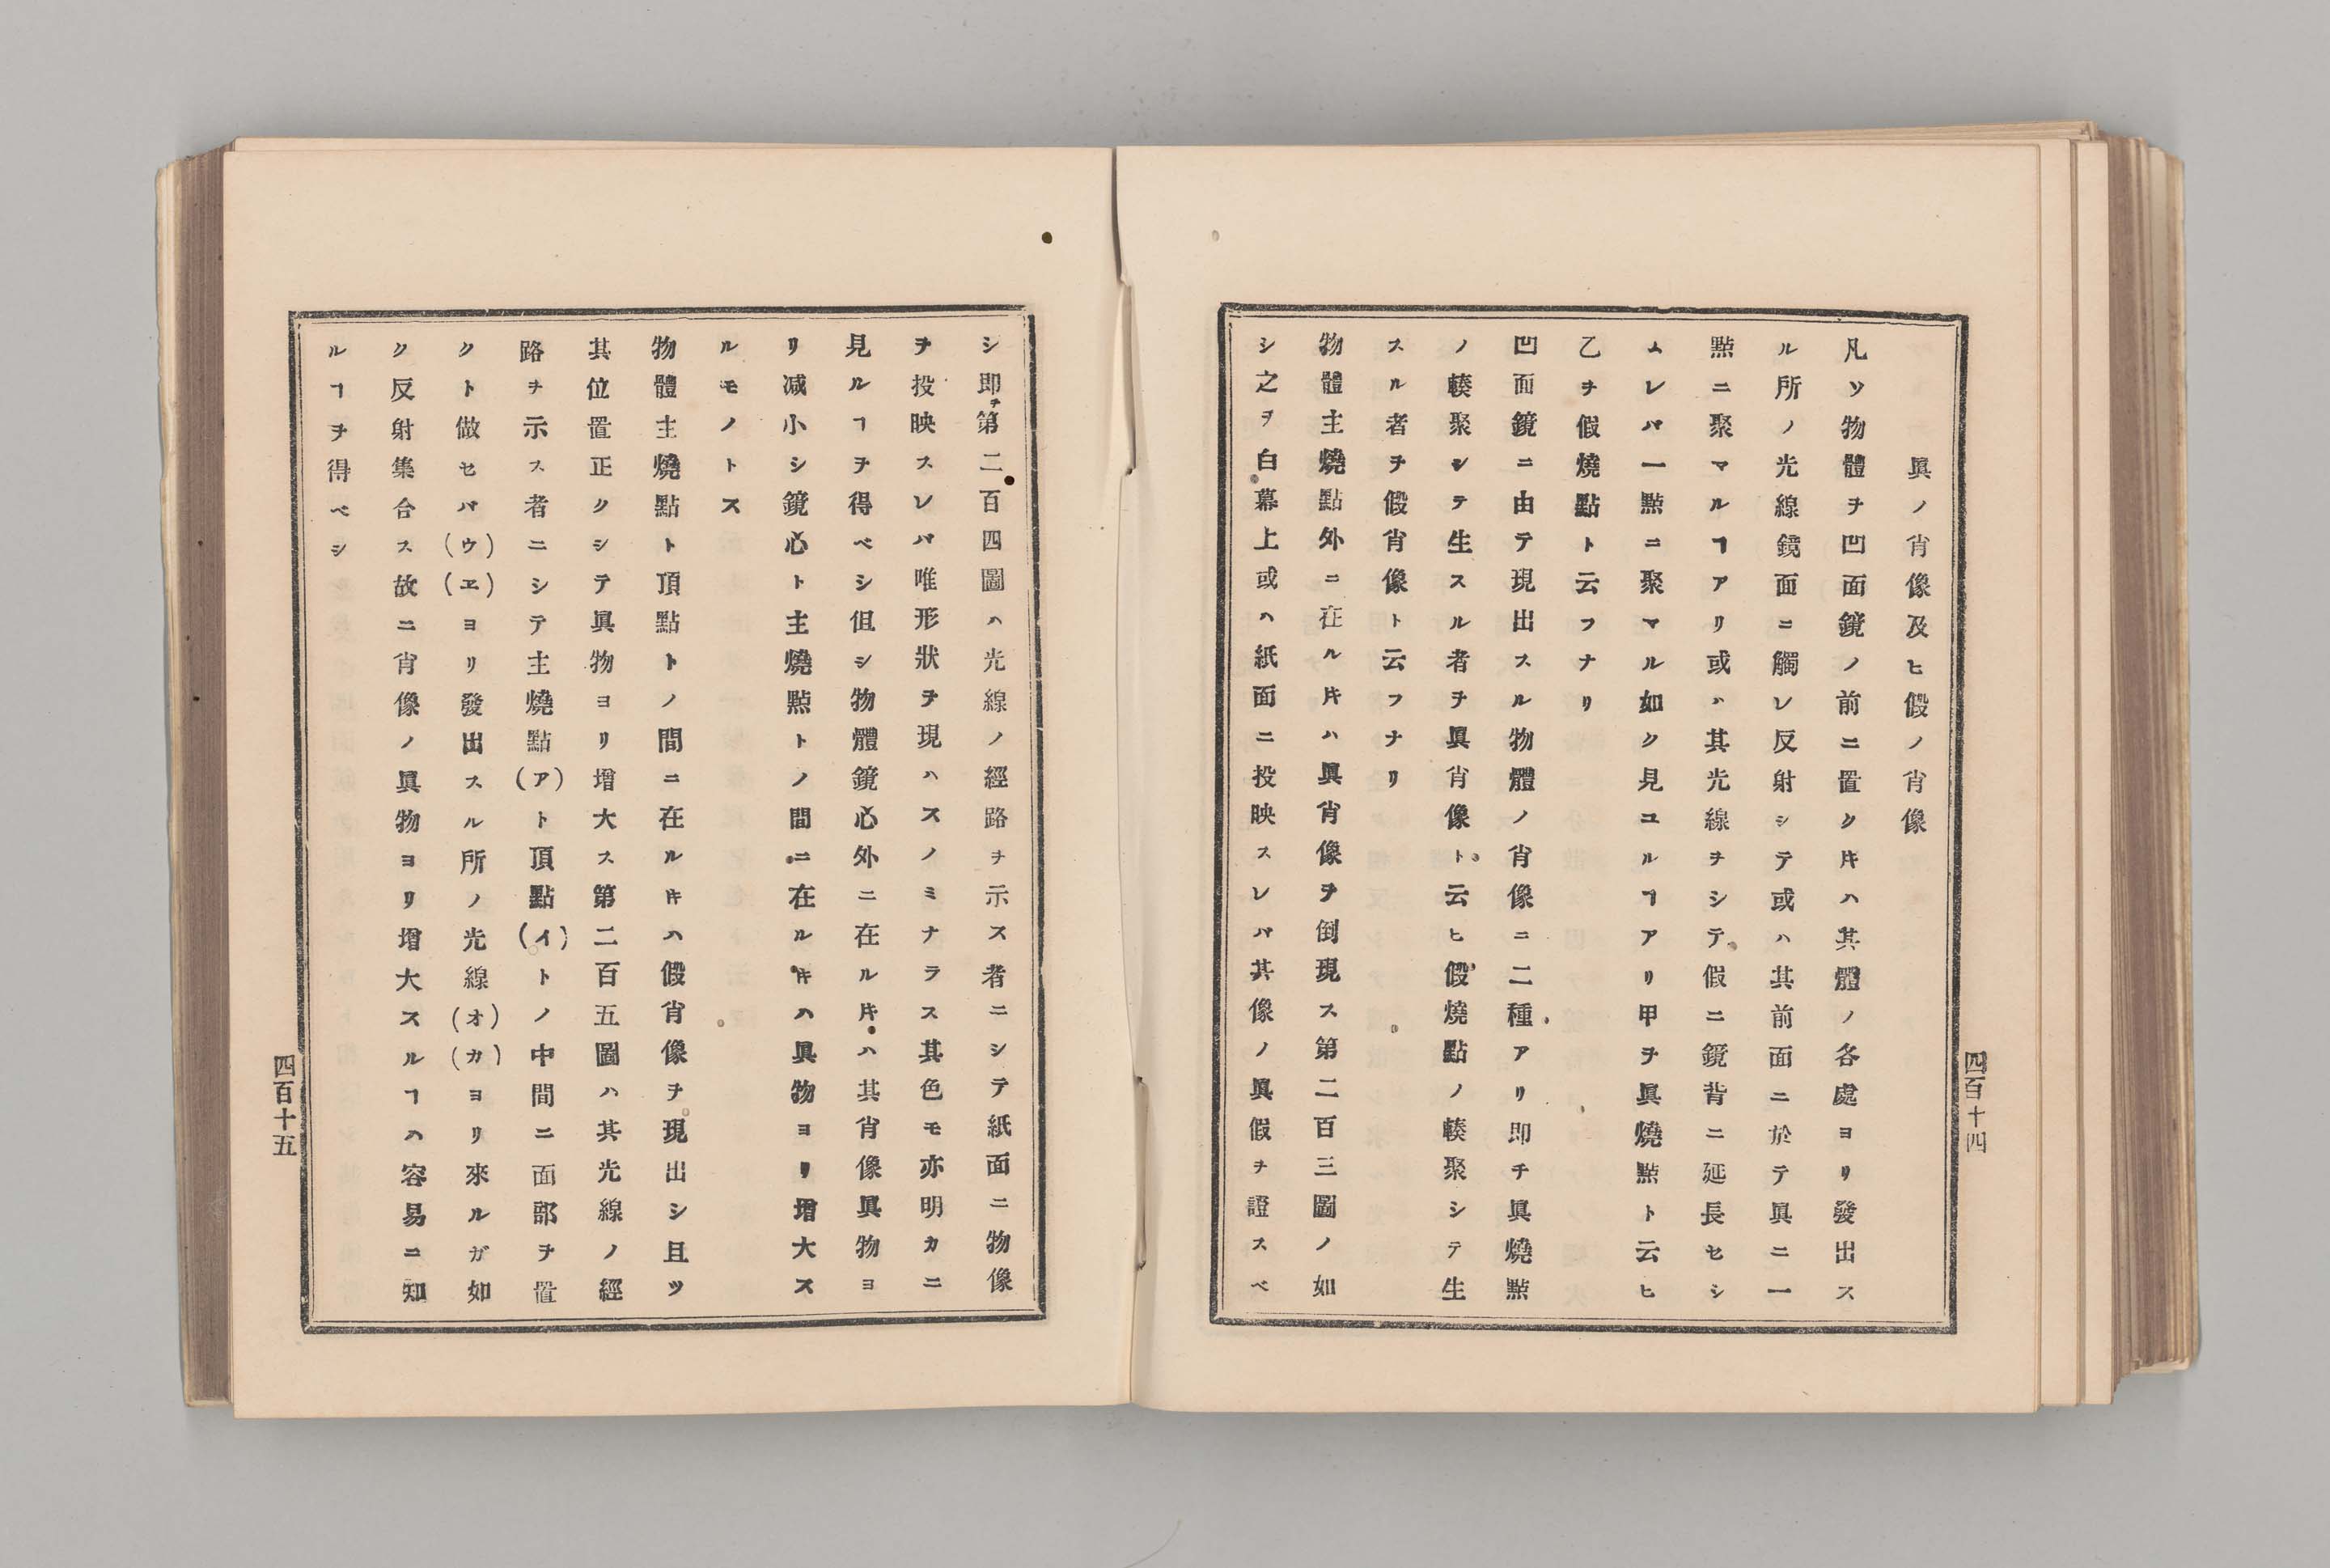 眞ノ肖像及ヒ假ノ肖像
凡ソ物體ヲ凹面鏡ノ前ニ置ク𪜈ハ其體ノ各處ヨリ發出ス
ル所ノ光線鏡面ニ觸レ反射シテ或ハ其前面ニ於テ眞ニ一
㸃ニ聚マルヿアリ或ハ其光線ヲシテ假ニ鏡背ニ延長セシ
ムレバ一㸃ニ聚マル如ク見ユルヿアリ甲ヲ眞燒㸃ト云ヒ
乙ヲ假燒點ト云フナリ
凹面鏡ニ由テ現出スル物體ノ肖像ニ二種アリ即チ眞燒㸃
ノ輳聚シテ生スル者ヲ眞肖像ト云ヒ假燒點ノ輳聚シテ生
スル者ヲ假肖像ト云フナリ
物體主燒點外ニ在ル𪜈ハ眞肖像ヲ倒現ス第二百三圖ノ如
シ之ヲ白幕上或ハ紙面ニ投映スレバ其像ノ眞假ヲ證スベ
四百十四
シ即チ第二百四圖ハ光線ノ經路ヲ示ス者ニシテ紙面ニ物像
ヲ投映スレバ唯形狀ヲ現ハスノミナラス其色モ亦明カニ
見ルヿヲ得ベシ但シ物體鏡心外ニ在ル𪜈ハ其肖像眞物ヨ
リ減小シ鏡心ト主燒㸃トノ間ニ在ル𪜈ハ眞物ヨリ增大ス
ルモノトス
物體主燒點ト頂點トノ間ニ在ル𪜈ハ假肖像ヲ現出シ且ツ
其位置正クシテ眞物ヨリ增大ス第二百五圖ハ其光線ノ經
路ヲ示ス者ニシテ主燒點(ア)ト頂點(イ)トノ中間ニ面部ヲ置
クト做セバ(ウ)(ヱ)ヨリ發出スル所ノ光線(オ)(カ)ヨリ來ルガ如
ク反射集合ス故ニ肖像ノ眞物ヨリ增大スルヿハ容易ニ知
ルヿヲ得ベシ
四百十五